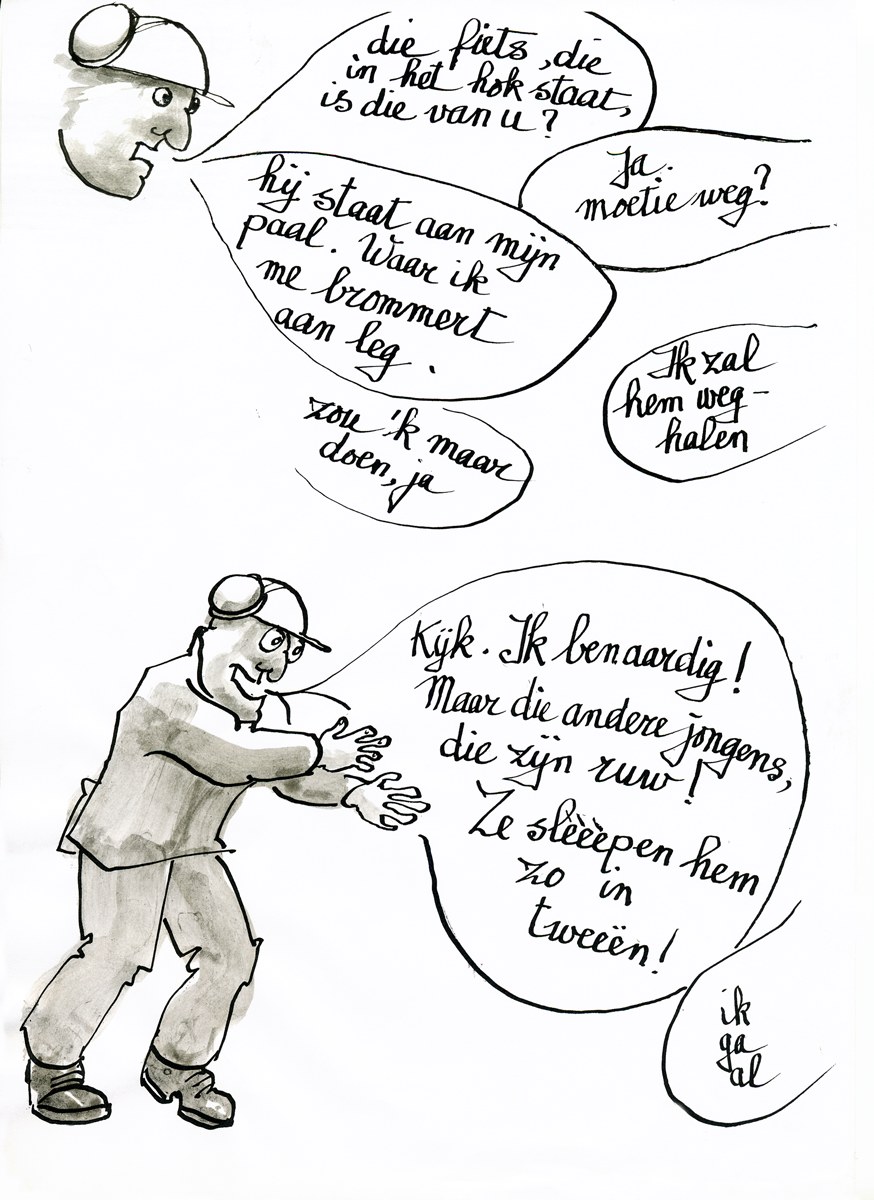 die fiets, die
in het hok staat,
is die van u?
Ja.
moetie weg?
hij staat aan mijn
paal. Waar ik
me brommert
aan leg.
Ik zal
hem weg-
halen
zou 'k maar
doen, ja
Kijk. Ik ben aardig!
Maar die andere jongens,
die zijn ruw!
Ze slèèèpen hem
zo in
tweeën!
ik
ga
al